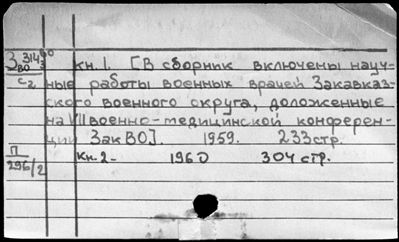 З 3143
ВО
С2
кн. 1. [В сборник включены науч-
ные работы военных врачей Закавказ-
ского военного округа, доложенные
на VII военно-медицинской конферен-
ции ЗакВО]. 1959. 233 стр.
П
296/2
Кн. 2- 1960 304 стр.